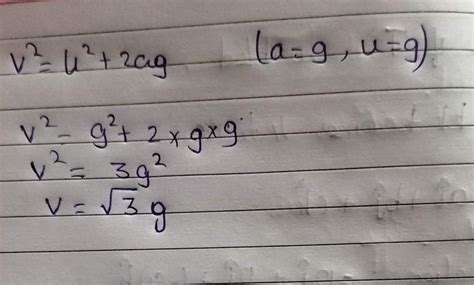 v² = u² + 2ag (a=g, u=g)
v² - g² + 2 × g × g
v² = 3g²
v = √3 g